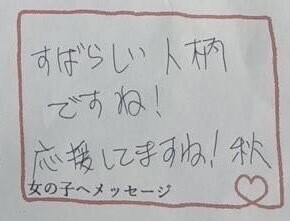 すばらしい人柄
ですね!
応援してますね!秋
女の子へメッセージ